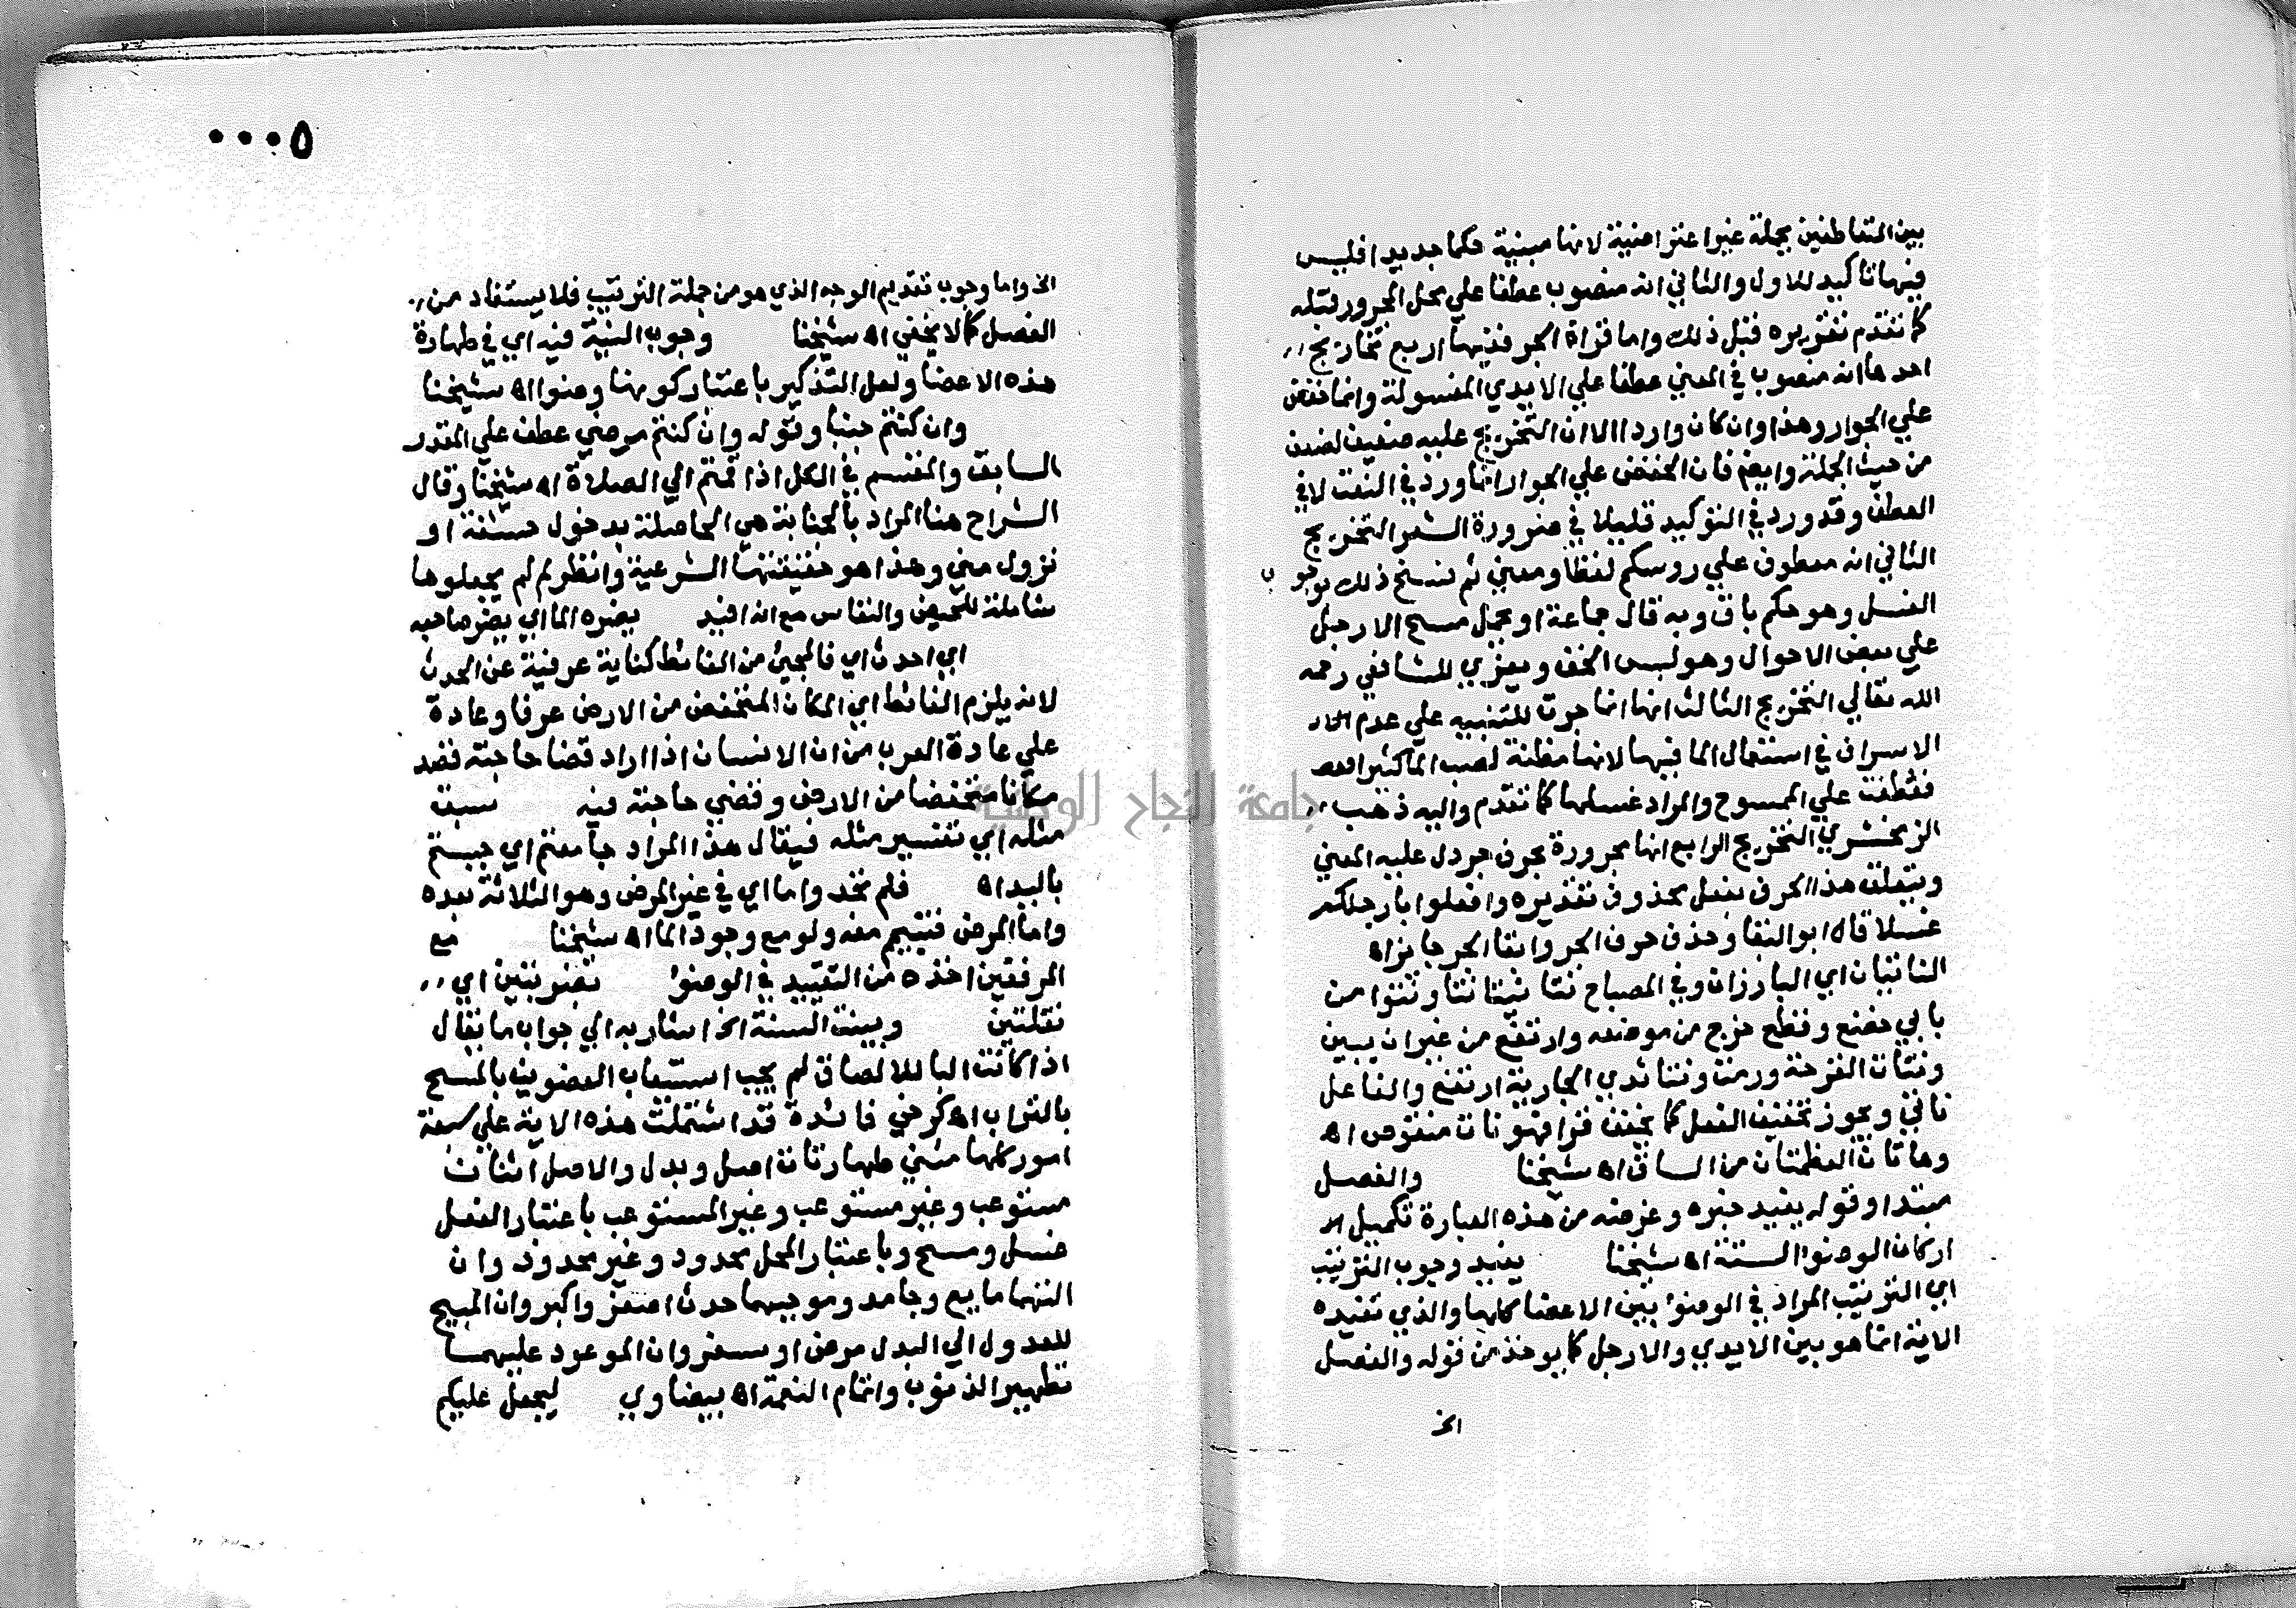 بين المتعاطفين بجملة غير اعتراضية لانها مبينة حكما جديدا فليس
فيها تاكيد للاول والثاني انه منصوب عطفا علي محل المجرور قبله
كما تقدم تقريره قبل ذلك واما قراة الجر ففيها اربع تخاريج
احدها انه منصوب في المعني عطفا علي الايدي المغسولة وانما خفض
علي الجوار وهذا وان كان واردا الا ان التخريج عليه ضعيف لضعف
من حيث الجملة وايضا فان الخفض علي الجوار انما ورد في النعت لا في
العطف وقد ورد في التوكيد قليلا في ضرورة الشعر التخريج
الثاني انه معطوف علي روسكم لفظا ومعني ثم نسخ ذلك بوجوب
الغسل وهو حكم باق وبه قال جماعة او يحمل مسح الارجل
علي بعض الاحوال وهو لبس الخف ويعزي للشافعي رحمه
الله تعالي التخريج الثالث انها انما جرت للتنبيه علي عدم الا
الاسراف في استعمال الما فيها لانها مظنة لصب الما كثيرا
فعطفت علي الممسوح والمراد غسلها كما تقدم واليه ذهب
الزمخشري التخريج الرابع انها مجرورة بحرف جر دل عليه المعني
ويتعلق هذا الحرف بفعل محذوف تقديره وافعلوا بارجلكم
غسلا قال ابو البقا وحذف حرف الجر وابقا الجر جايز اه
الناتيان اي البارزان وفي المصباح نتا ينتا نتا ونتوا من
بابي خضع وقطع خرج من موضعه وارتفع من غير ان يبين
ونتات القرحة ورمت ونتا ثدي الجارية ارتفع والفاعل
ناتي ويجوز تخفيف الفعل كما يخفف قرا فهو نات منقوص اه
وهاتان العظمتان من الساق اه شيخنا والفصل
مبتدا وقوله يفيد خبره وغرضه من هذه العبارة تكميل
اركان الوضوا الستة اه شيخنا يفيد وجوب الترتيب
اي الترتيب المراد في الوضوء بين الاعضا كلها والذي تفيده
الاية انما هو بين الايدي والارجل كما يوخذ من قوله والفصل
الخ
٠٠٠٥
الخ واما وجوب تقديم الوجه الذي هو من جملة الترتيب فلا يستفاد من
الفصل كما لا يخفي اه شيخنا وجوب النية فيه اي في طهارة
هذه الاعضا ولعل التذكير باعتبار كونها وضوا اه شيخنا
وان كنتم جنبا وقوله وان كنتم مرضي عطف علي المقدر
السابق والمقسم في الكل اذا قمتم الي الصلاة اه شيخنا وقال
الشراح هنا المراد بالجنابة هي الحاصلة بدخول حشفة او
نزول مني وهذا هو حقيقتها الشرعية وانظر لم لم يجعلوها
شاملة للحيض والنفاس مع انه افيد يضره الما اي يضر صاحبه
اي احدث اي فالمجيئ من الغائط كناية عرفية عن الحدث
لانه يلزم الغائط اي المكان المنخفض من الارض عرفا وعادة
علي عادة العرب من ان الانسان اذا اراد قضا حاجته قصد
مكانا منخفضا من الارض وقضي حاجته فيه سبق
مثله اي تفسير مثله فيقال هذا المراد جامعتم اي جسيتم
باليد اه فلم تجد واما اي في غير المرض وهو الثلاثة بعده
واما المرض فتيمم معه ولو مع وجود الما اه شيخنا مع
المرفقين اخذه من التقييد في الوضوء بضربتين اي
نقلتين وبينت السنة الخ اشار به الي جواب ما يقال
اذا كانت البا للالصاق لم يجب استيعاب العضوين بالمسح
بالتراب اه كرخي فائدة قد اشتملت هذه الاية علي سبعة
امور كلها مثني طهارتان اصل وبدل والاصل اثنان
مستوعب وغير مستوعب وغير المستوعب باعتبار الفعل
غسل ومسح وباعتبار المحل محدود وغير محدود وان
التهما مايع وجامد وموجبهما حدث اصغر واكبر وان المبيح
للعدول الي البدل مرض او سفر وان الموعود عليهما
تطهير الذنوب واتمام النعمة اه بيضاوي ليجعل عليكم
جامعة النجاح الوطنية